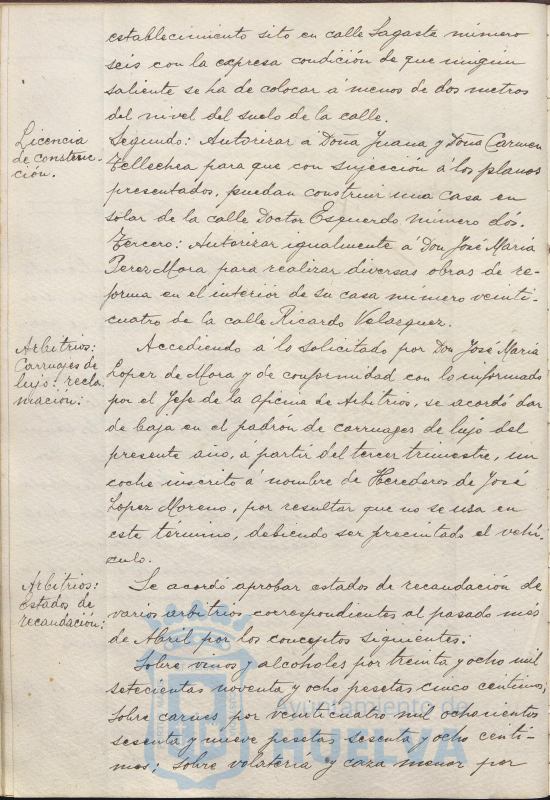 establecimiento sito en calle Sagasta número
seis con la expresa condición de que ningún
saliente se ha de colocar á menos de dos metros
del nivel del suelo de la calle.
Licencia
de construc-
ción.
Segundo: Autorizar á Doña Juana y Doña Carmen
Tellechea para que con sujección á los planos
presentados, puedan construir una casa en
solar de la calle Doctor Esquerdo número dós.
Tercero: Autorizar igualmente á Don José Maria
Perez Mora para realizar diversas obras de re-
forma en el interior de su casa número veinti-
cuatro de la calle Ricardo Velazquez.
Arbitrios:
Carruages de
lujo: recla-
mación:
Accediendo á lo solicitado por Don José Maria
Lopez de Mora y de conformidad con lo informado
por el Jefe de la oficina de Arbitrios, se acordó dar
de baja en el padrón de carruages de lujo del
presente año, á partir del tercer trimestre, un
coche inscrito á nombre de Herederos de José
Lopez Moreno, por resultar que no se usa en
este término, debiendo ser precintado el vehí-
culo.
Arbitrios:
estados de
recaudación:
Se acordó aprobar estados de recaudación de
varios arbitrios correspondientes al pasado més
de Abril por los conceptos siguientes:
Sobre vinos y alcoholes por treinta y ocho mil
setecientas noventa y ocho pesetas cinco centimos;
Sobre carnes por veinticuatro mil ochocientos
sesenta y nueve pesetas sesenta y ocho centi-
mos; Sobre volateria y caza menor por
Ayuntamiento de
HUELVA